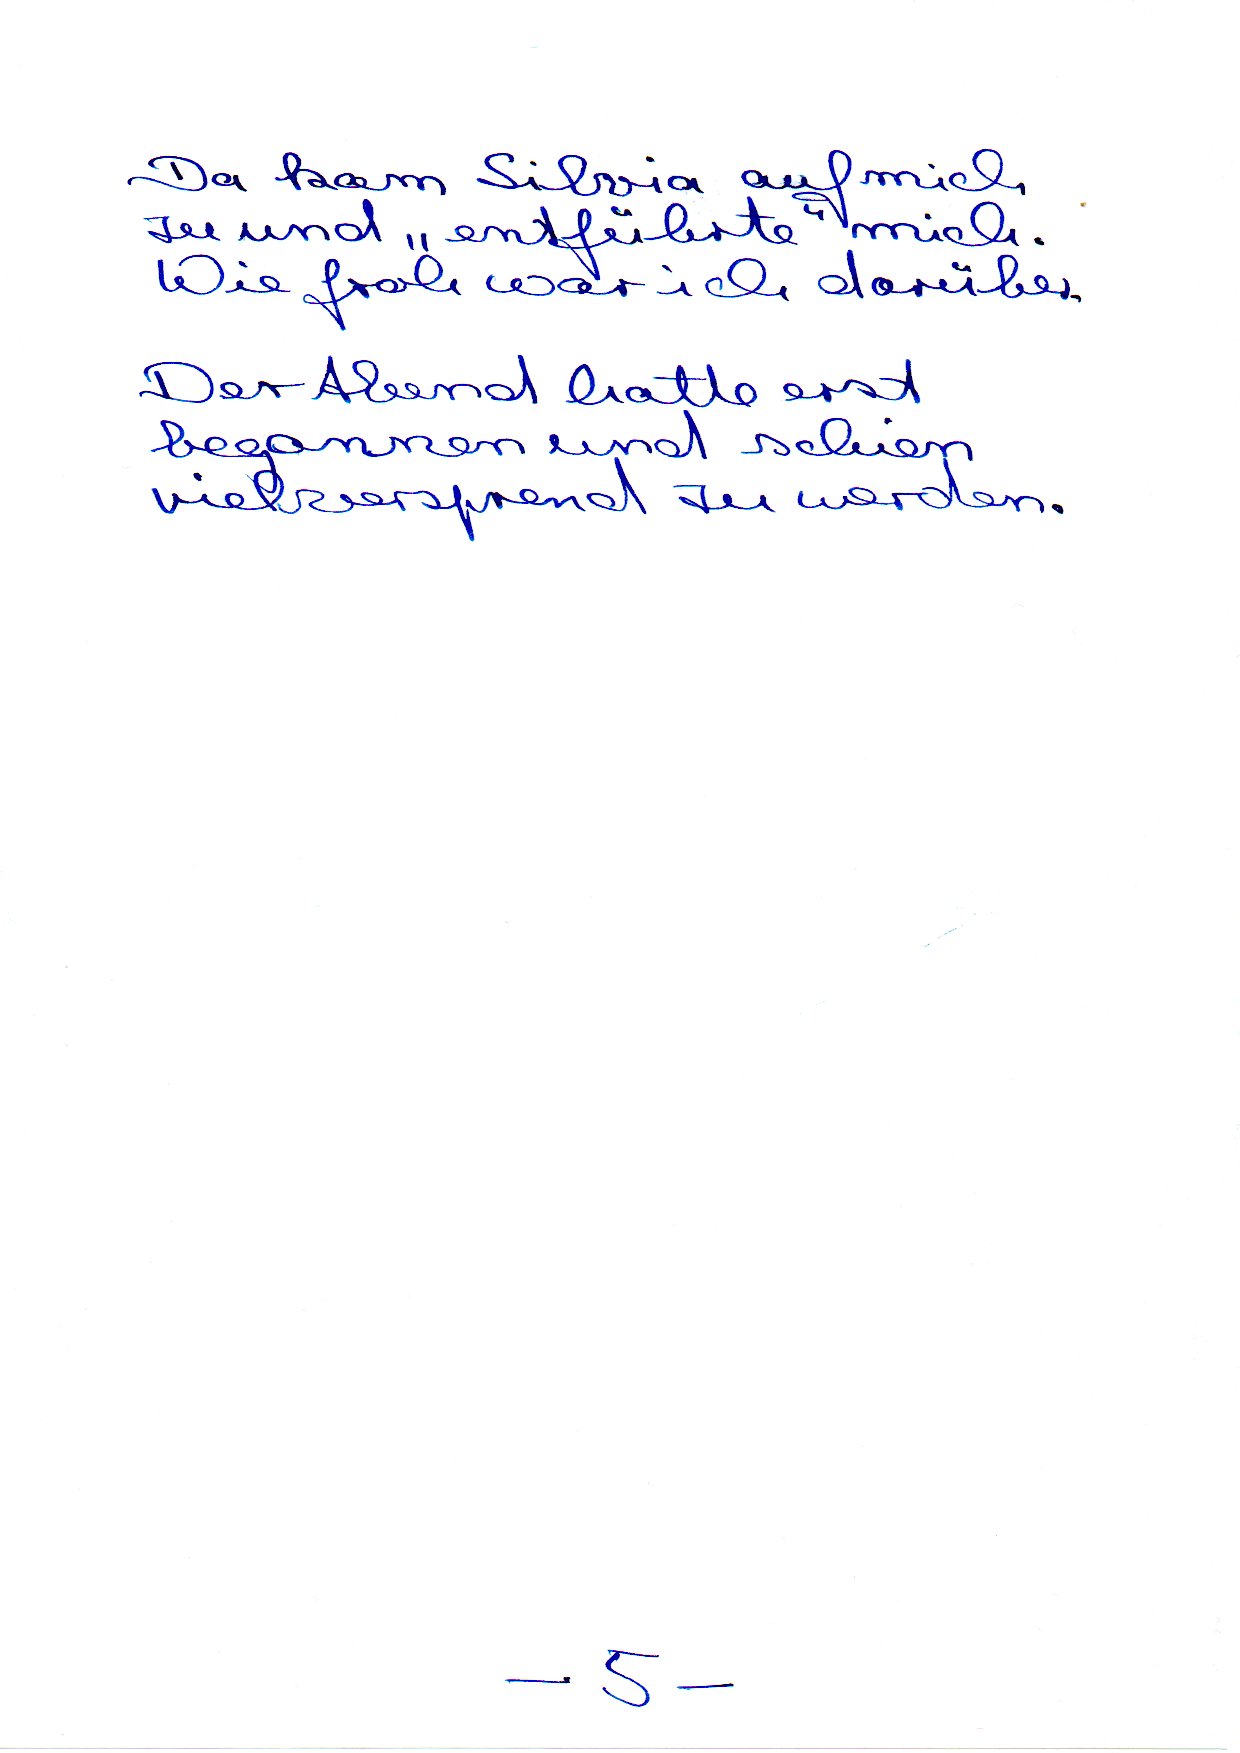 Da kam Silvia auf mich
zu und „entführte“ mich.
Wie froh war ich darüber.
Der Abend hatte erst
begonnen und schien
vielversprend zu werden.
— 5 —